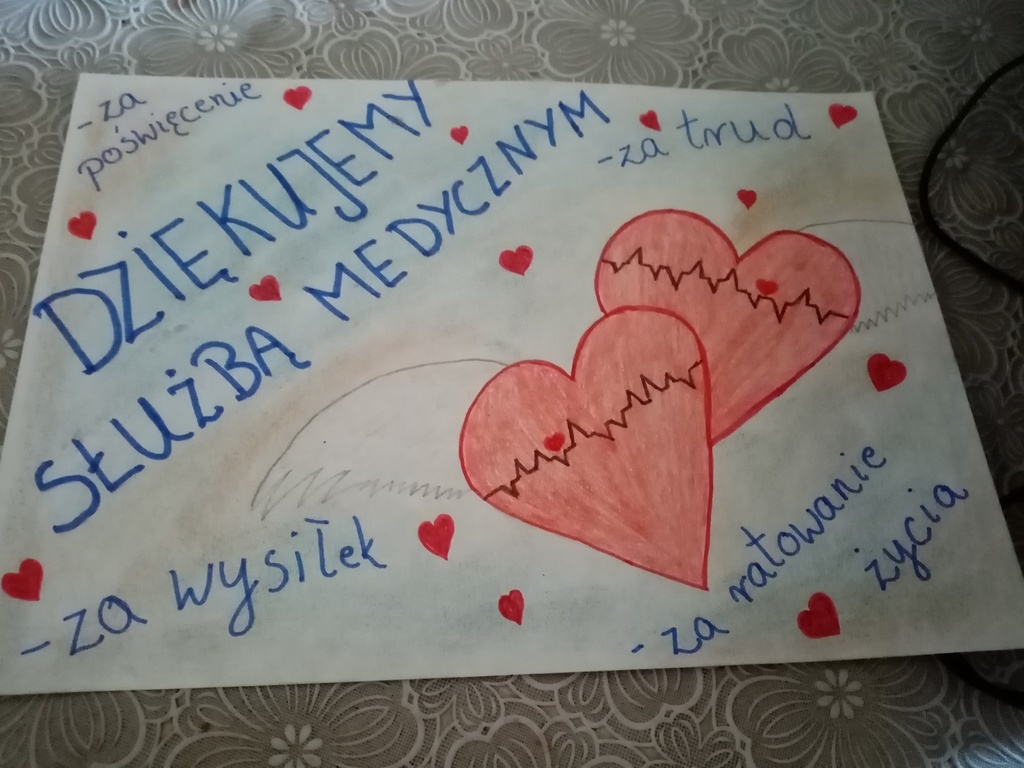 -za
poświęcenie
DZIĘKUJEMY
SŁUŻBĄ MEDYCZNYM
-za trud
-za wysiłek
-za ratowanie
życia